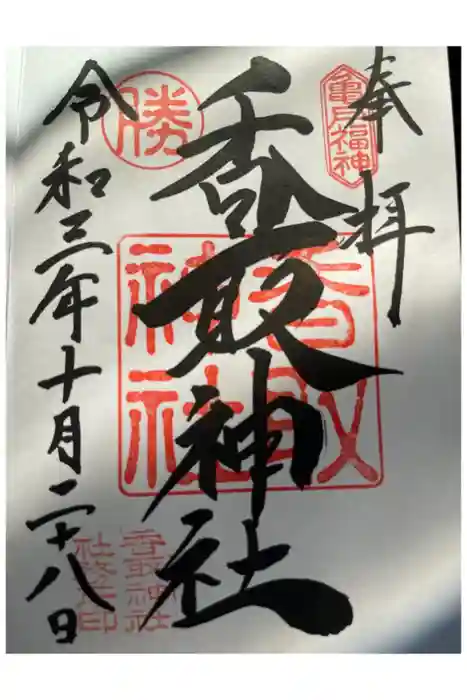 奉拝
亀戸福神
香取神社
香取
神社
勝
令和三年十月二十八日
香取神社
社務所印